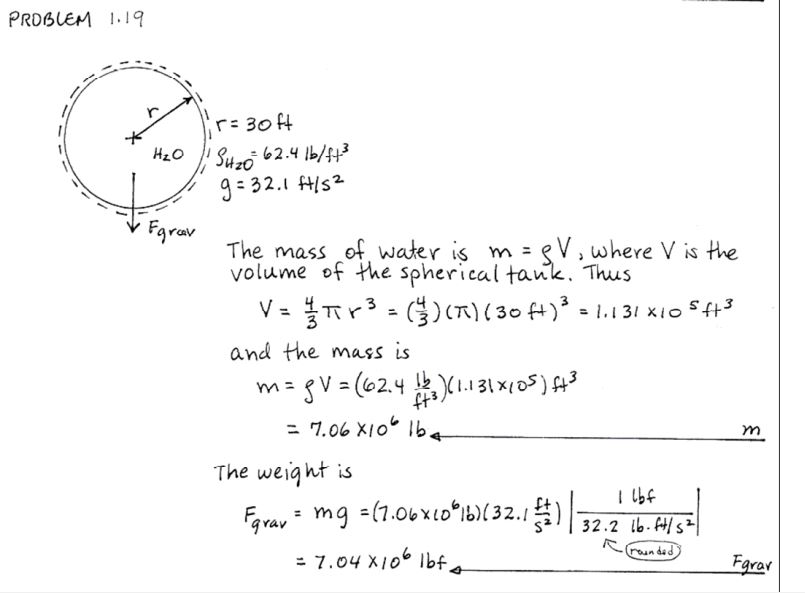 PROBLEM 1.19
r
r = 30 ft
H₂O
ρH₂O = 62.4 lb/ft³
g = 32.1 ft/s²
Fgrav
The mass of water is m = ρV, where V is the
volume of the spherical tank. Thus
V = 4/3 π r³ = (4/3)(π)(30 ft)³ = 1.131 x10⁵ ft³
and the mass is
m = ρV = (62.4 lb/ft³)(1.131x10⁵) ft³
= 7.06 X10⁶ lb m
The weight is
Fgrav = mg = (7.06x10⁶ lb)(32.1 ft/s²) | 1 lbf / 32.2 lb·ft/s² |
rounded
= 7.04 X10⁶ lbf Fgrav